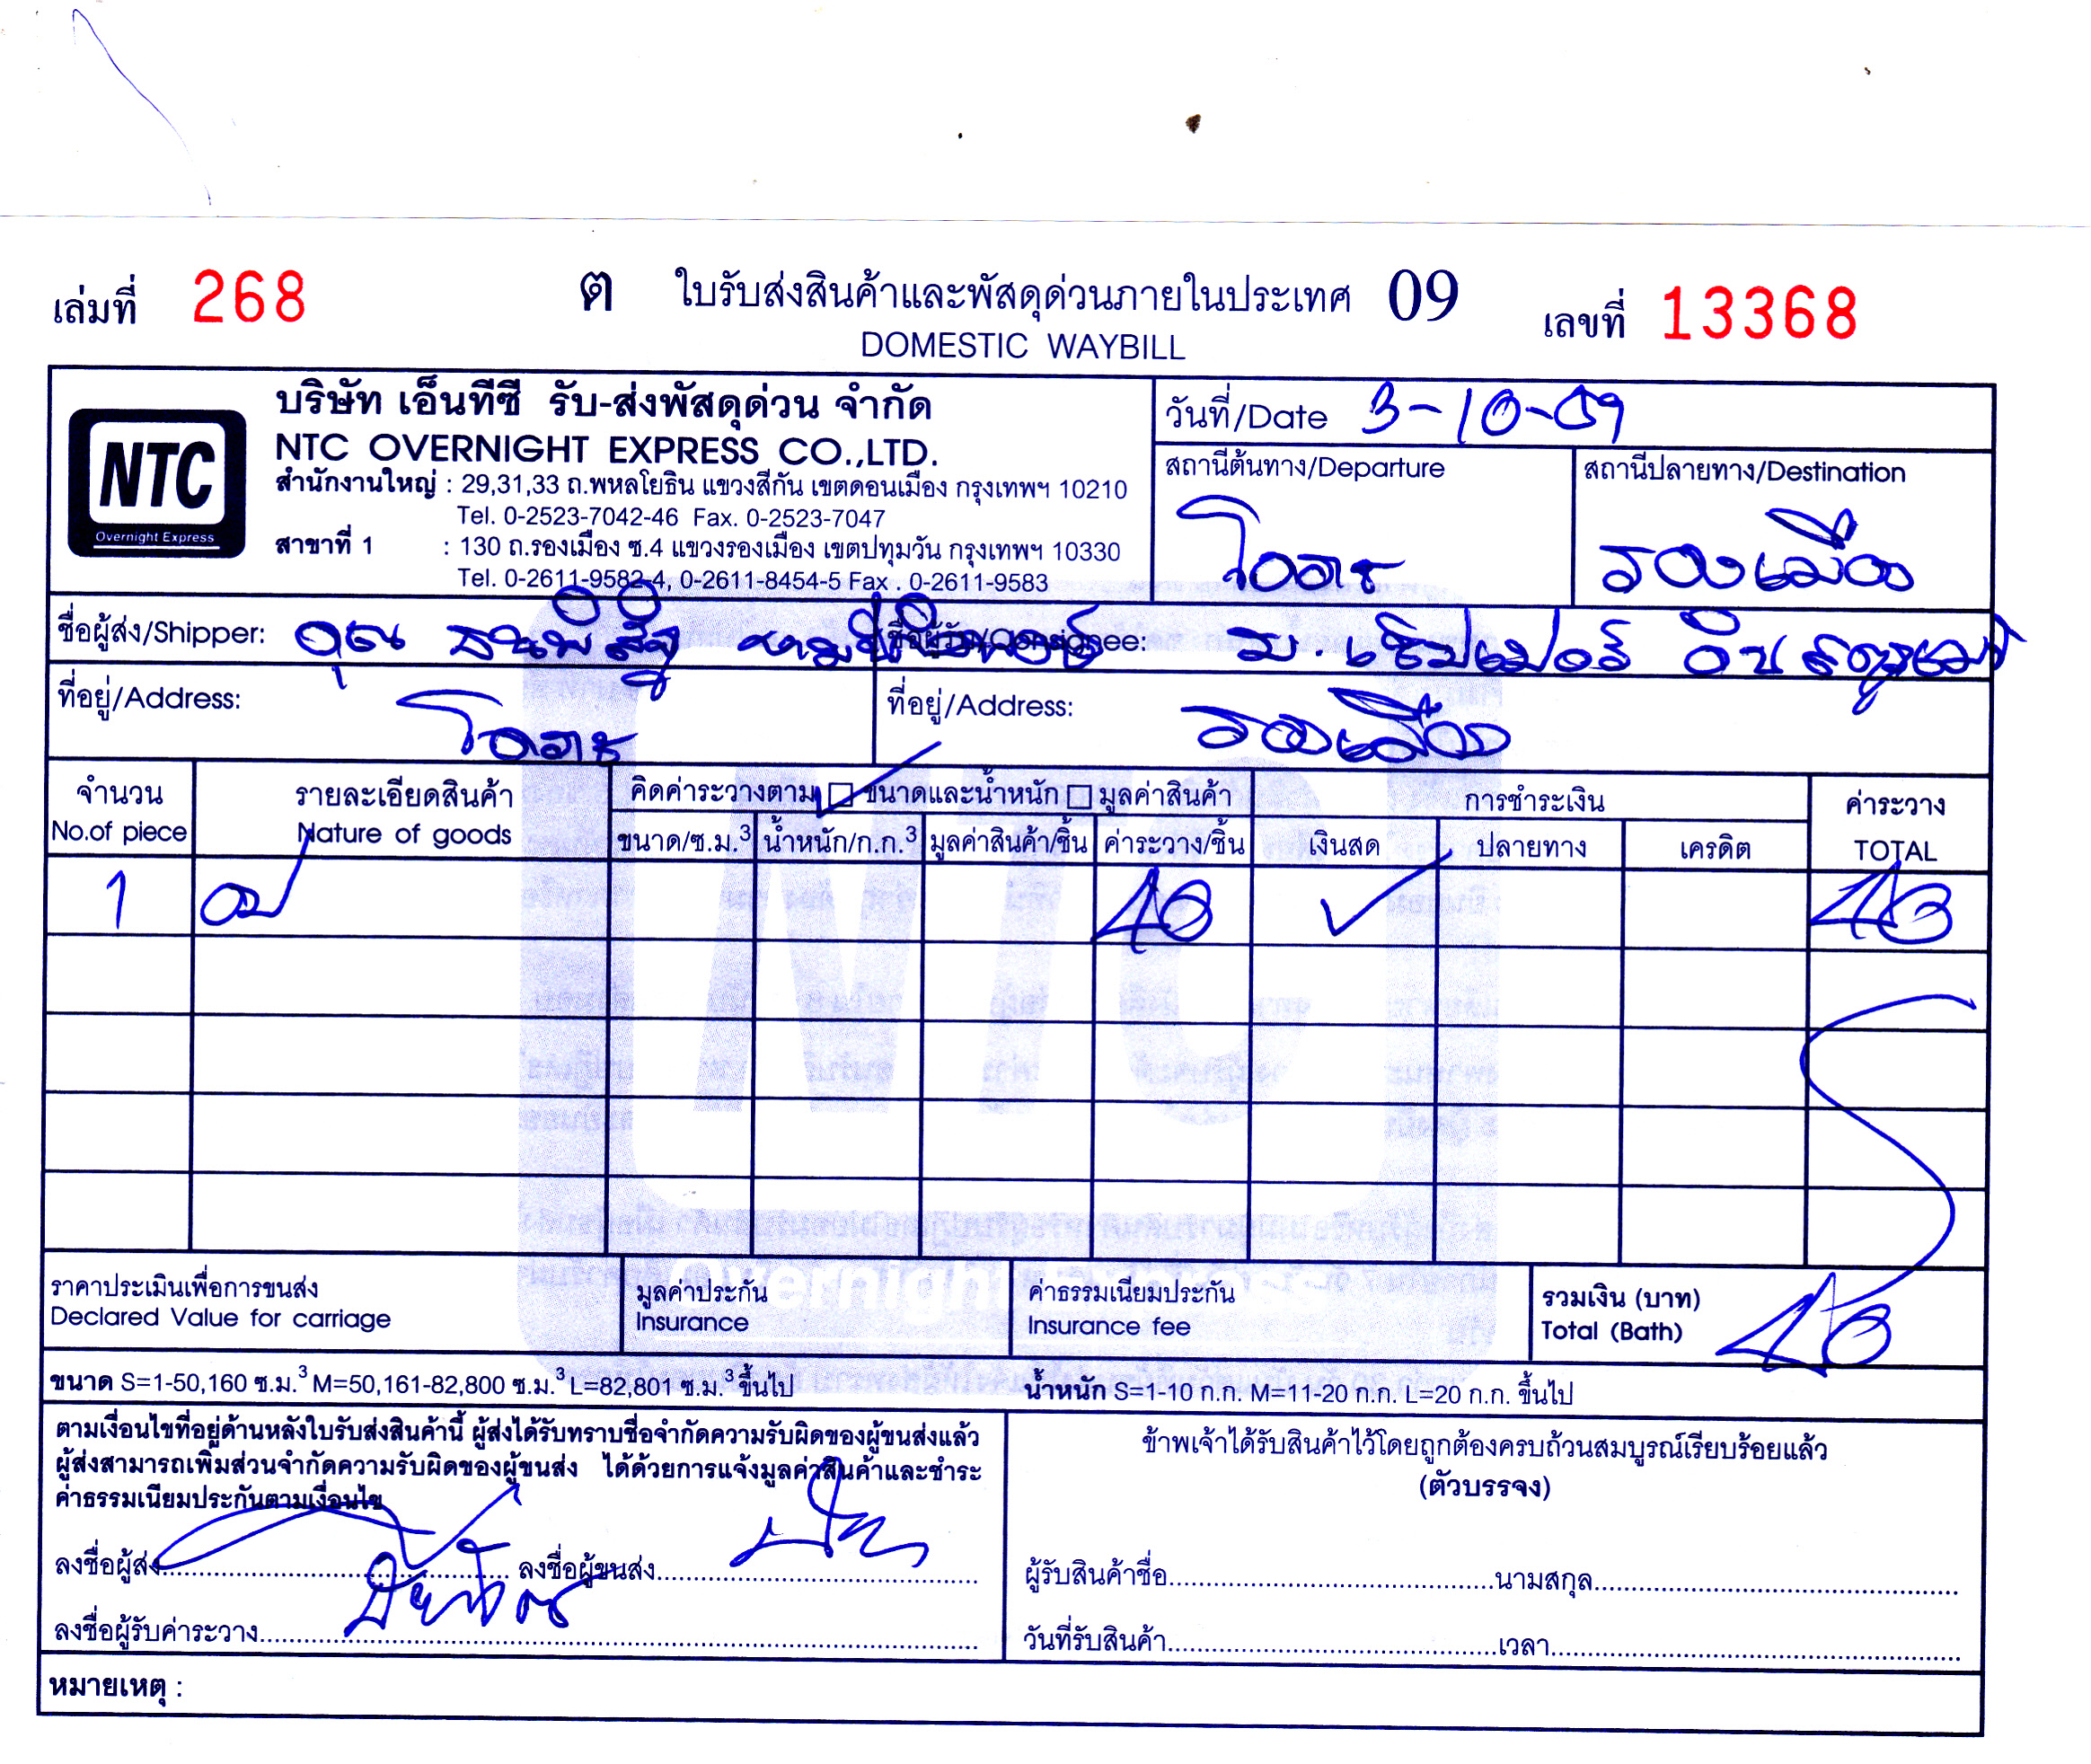 เล่มที่ 268 ต ใบรับส่งสินค้าและพัสดุด่วนภายในประเทศ 09 เลขที่ 13368
DOMESTIC WAYBILL
NTC
Overnight Express
บริษัท เอ็นทีซี รับ-ส่งพัสดุด่วน จำกัด
NTC OVERNIGHT EXPRESS CO.,LTD.
สำนักงานใหญ่ : 29,31,33 ถ.พหลโยธิน แขวงสีกัน เขตดอนเมือง กรุงเทพฯ 10210
Tel. 0-2523-7042-46 Fax. 0-2523-7047
สาขาที่ 1 : 130 ถ.รองเมือง ซ.4 แขวงรองเมือง เขตปทุมวัน กรุงเทพฯ 10330
Tel. 0-2611-9582-4, 0-2611-8454-5 Fax . 0-2611-9583
วันที่/Date 3-10-09
สถานีต้นทาง/Departure สถานีปลายทาง/Destination
โคราช รองเมือง
ชื่อผู้ส่ง/Shipper: คุณ ชื่อผู้รับ/Consignee:
ที่อยู่/Address: โคราช ที่อยู่/Address: รองเมือง
จำนวน รายละเอียดสินค้า คิดค่าระวางตาม ขนาดและน้ำหนัก มูลค่าสินค้า การชำระเงิน ค่าระวาง
No.of piece Nature of goods ขนาด/ซ.ม.3 น้ำหนัก/ก.ก.3 มูลค่าสินค้า/ชิ้น ค่าระวาง/ชิ้น เงินสด ปลายทาง เครดิต TOTAL
1 40 40
ราคาประเมินเพื่อการขนส่ง มูลค่าประกัน ค่าธรรมเนียมประกัน รวมเงิน (บาท)
Declared Value for carriage Insurance Insurance fee Total (Bath) 40
ขนาด S=1-50,160 ซ.ม.3 M=50,161-82,800 ซ.ม.3 L=82,801 ซ.ม.3 ขึ้นไป น้ำหนัก S=1-10 ก.ก. M=11-20 ก.ก. L=20 ก.ก. ขึ้นไป
ตามเงื่อนไขที่อยู่ด้านหลังใบรับส่งสินค้านี้ ผู้ส่งได้รับทราบชื่อจำกัดความรับผิดของผู้ขนส่งแล้ว
ผู้ส่งสามารถเพิ่มส่วนจำกัดความรับผิดของผู้ขนส่ง ได้ด้วยการแจ้งมูลค่าสินค้าและชำระ
ค่าธรรมเนียมประกันตามเงื่อนไข
ลงชื่อผู้ส่ง ลงชื่อผู้ขนส่ง
ลงชื่อผู้รับค่าระวาง
ข้าพเจ้าได้รับสินค้าไว้โดยถูกต้องครบถ้วนสมบูรณ์เรียบร้อยแล้ว
(ตัวบรรจง)
ผู้รับสินค้าชื่อ นามสกุล
วันที่รับสินค้า เวลา
หมายเหตุ :